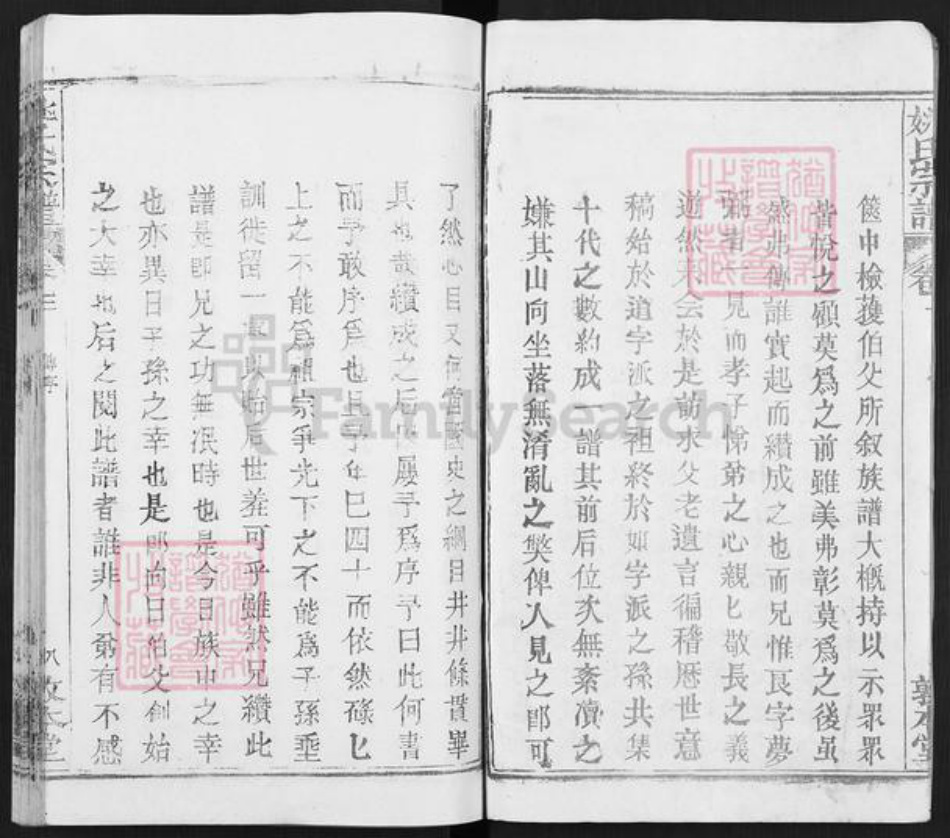 姚氏宗譜
敦本堂
篋中檢獲伯父所叙族譜大概持以示眾眾
皆悅之顧莫爲之前雖美弗彰莫爲之後虽
然弗傳誰實起而纘成之也而兄惟艮字夢
見而孝子悌弟之心親匕敬長之義
遊然夫会於是前求父老遺言徧稽歷世意
稿始於道字派之祖終於如字派之孫共集
十代之數約成一譜其前后位次無紊瀆之
嫌其山向坐落無淆亂之獘俾人見之即可
了然心目又何啻國史之綱目井井條貫畢
具也哉纘成之后以属予爲序予曰此何書
而予敢序爲也且予年巳四十而依然碌匕
上之不能爲祖宗爭光下之不能爲子孫垂
訓徒留一以貽后世羞可乎雖然兄纘此
譜是即兄之功無泯時也是今日族中之幸
也亦異日子孫之幸也是即向日伯父創始
之大幸也后之閱此譜者誰非人裔有不感
姚氏宗譜
敦本堂
FamilySearch